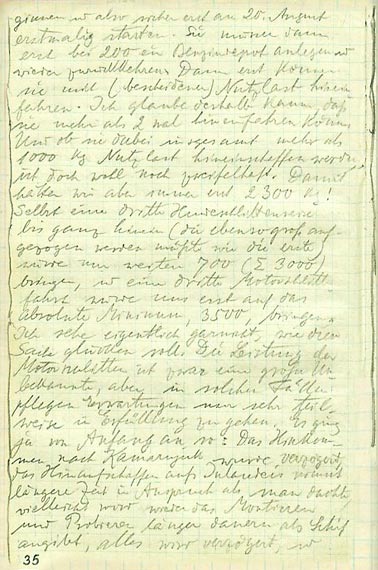 ginnen u also sicher erst am 20. August
erstmalig starten. Sie müssen dann
erst bei 200 ein Benzindepot anlegen u
wieder zurückkehren. Dann erst können
sie mit (bescheidener) Nutzlast hinein
fahren. Ich glaube deshalb kaum, daß
sie mehr als 2 mal hineinfahren können
Und ob sie dabei insgesamt mehr als
1000 kg Nutzlast hineinschaffen werden
ist doch wohl noch zweifelhaft. Damit
hätten wir aber immer erst 2300 kg!
Selbst eine dritte Hundeschlittenreise
bis ganz hinein (die ebenso groß auf-
gezogen werden müßte wie die erste
würde nur weitere 700 (Σ 3000)
bringen, u eine dritte Motorschlitt
fahrt würde uns erst auf das
absolute Minimum, 3500, bringen.
Ich sehe eigentlich garnicht, wie diese
Sache glücken soll. Die Leistung der
Motorschlitten ist zwar eine große Un
bekannte, aber in solchen Fällen
pflegen Erwartungen nur sehr teil-
weise in Erfüllung zu gehen. Es ging
ja von Anfang an so: Das Hinkom-
men nach Kamarujuk wurde verzögert,
das Hinaufschaffen aufs Inlandeis nimmt
längere Zeit in Anspruch als man dachte,
vielleicht wird wieder das Montieren
und Probieren länger dauern als Schif
angibt, alles wird verzögert, u
35